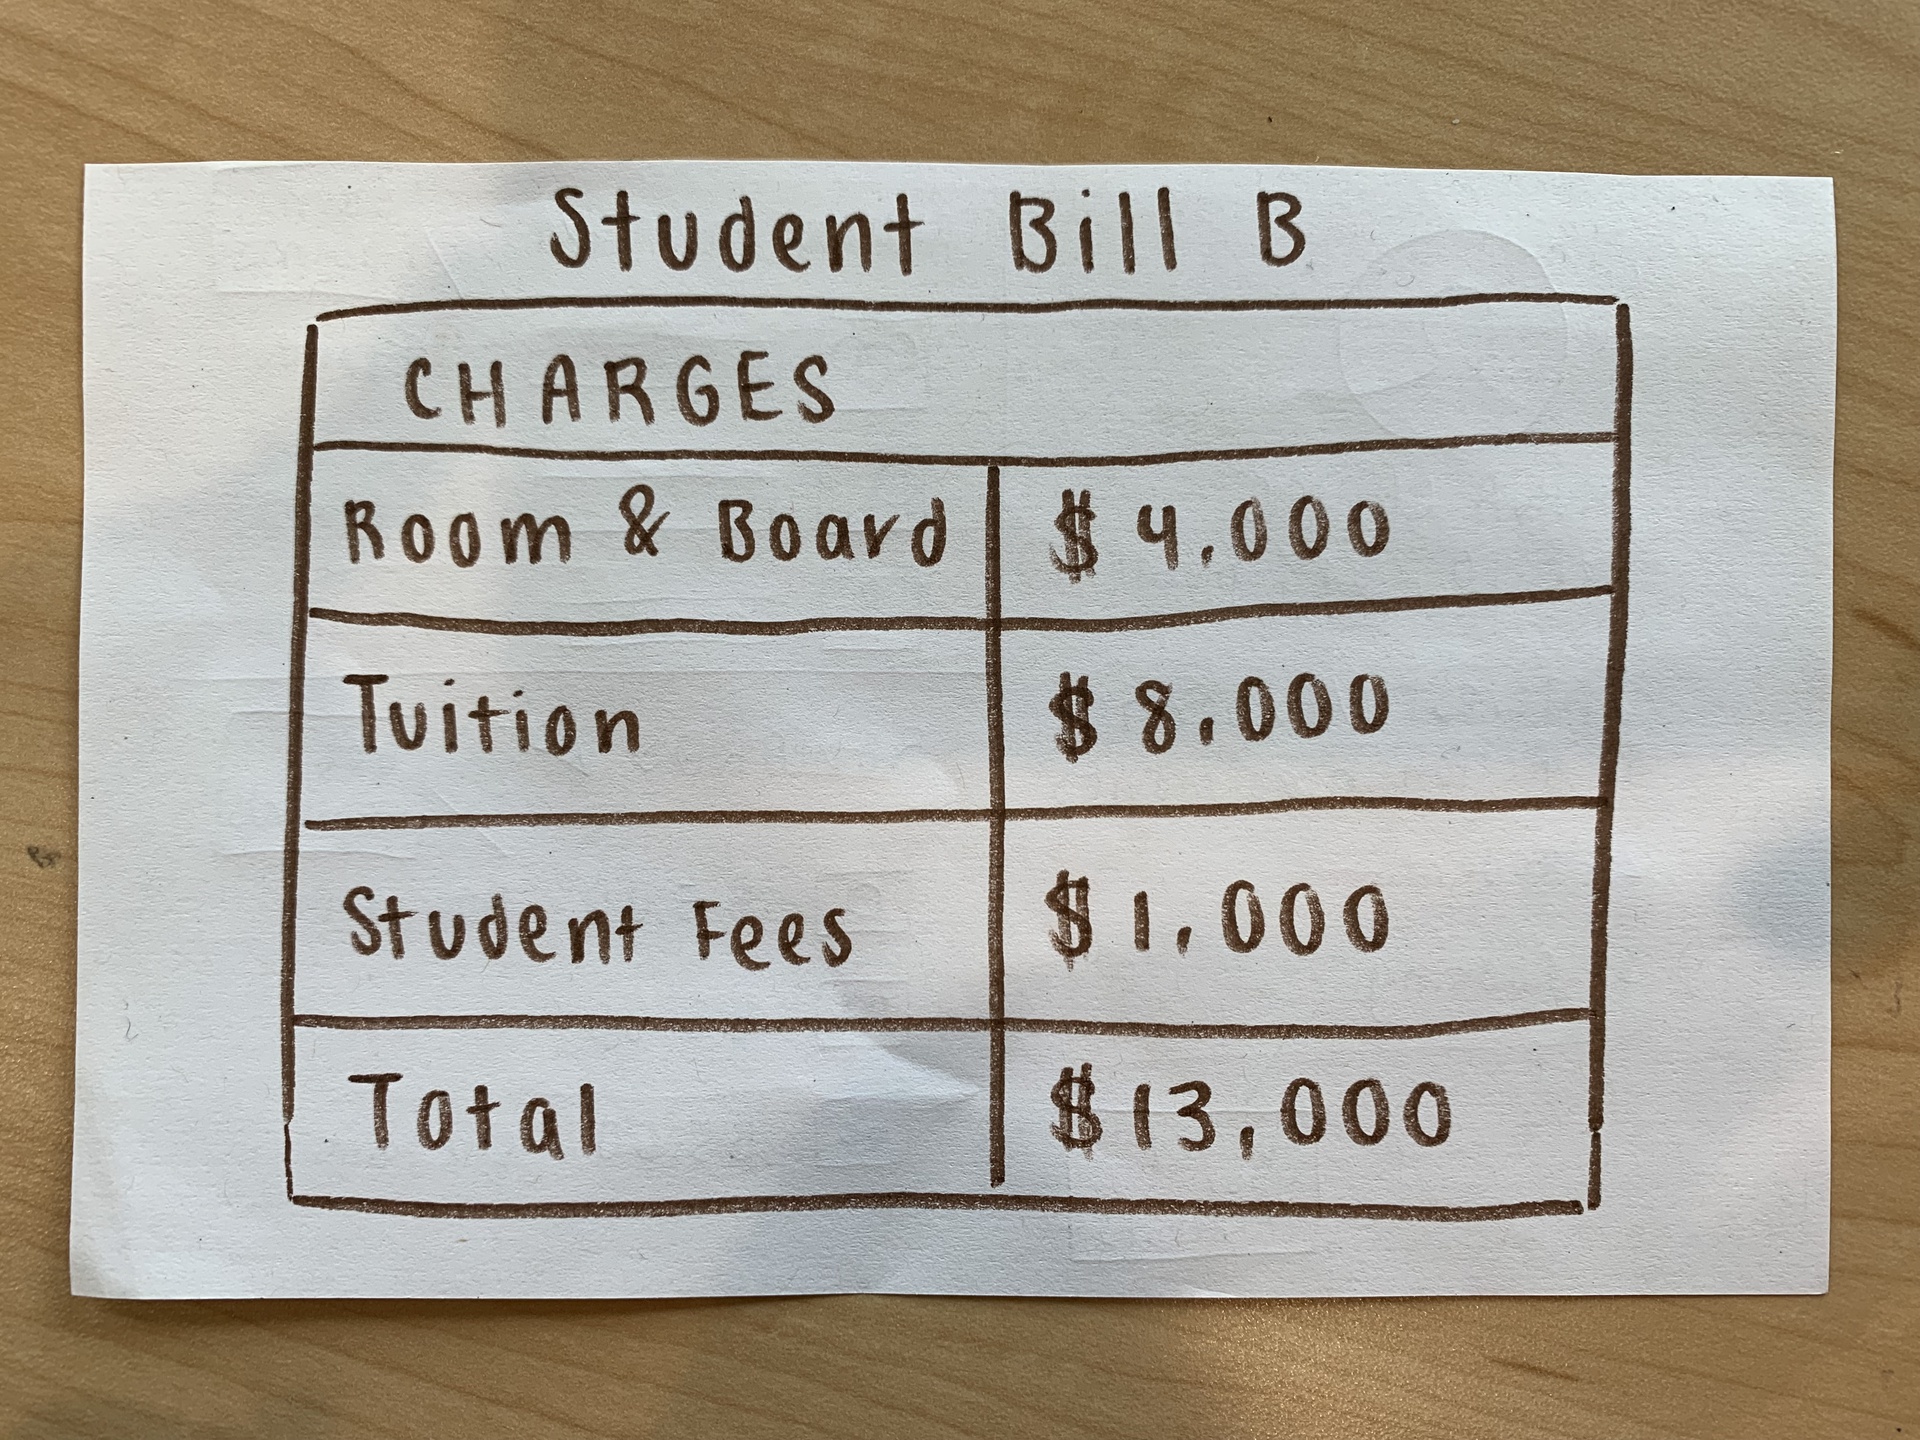 Student Bill B
CHARGES
Room & Board $ 4,000
Tuition $ 8,000
Student Fees $ 1,000
Total $ 13,000